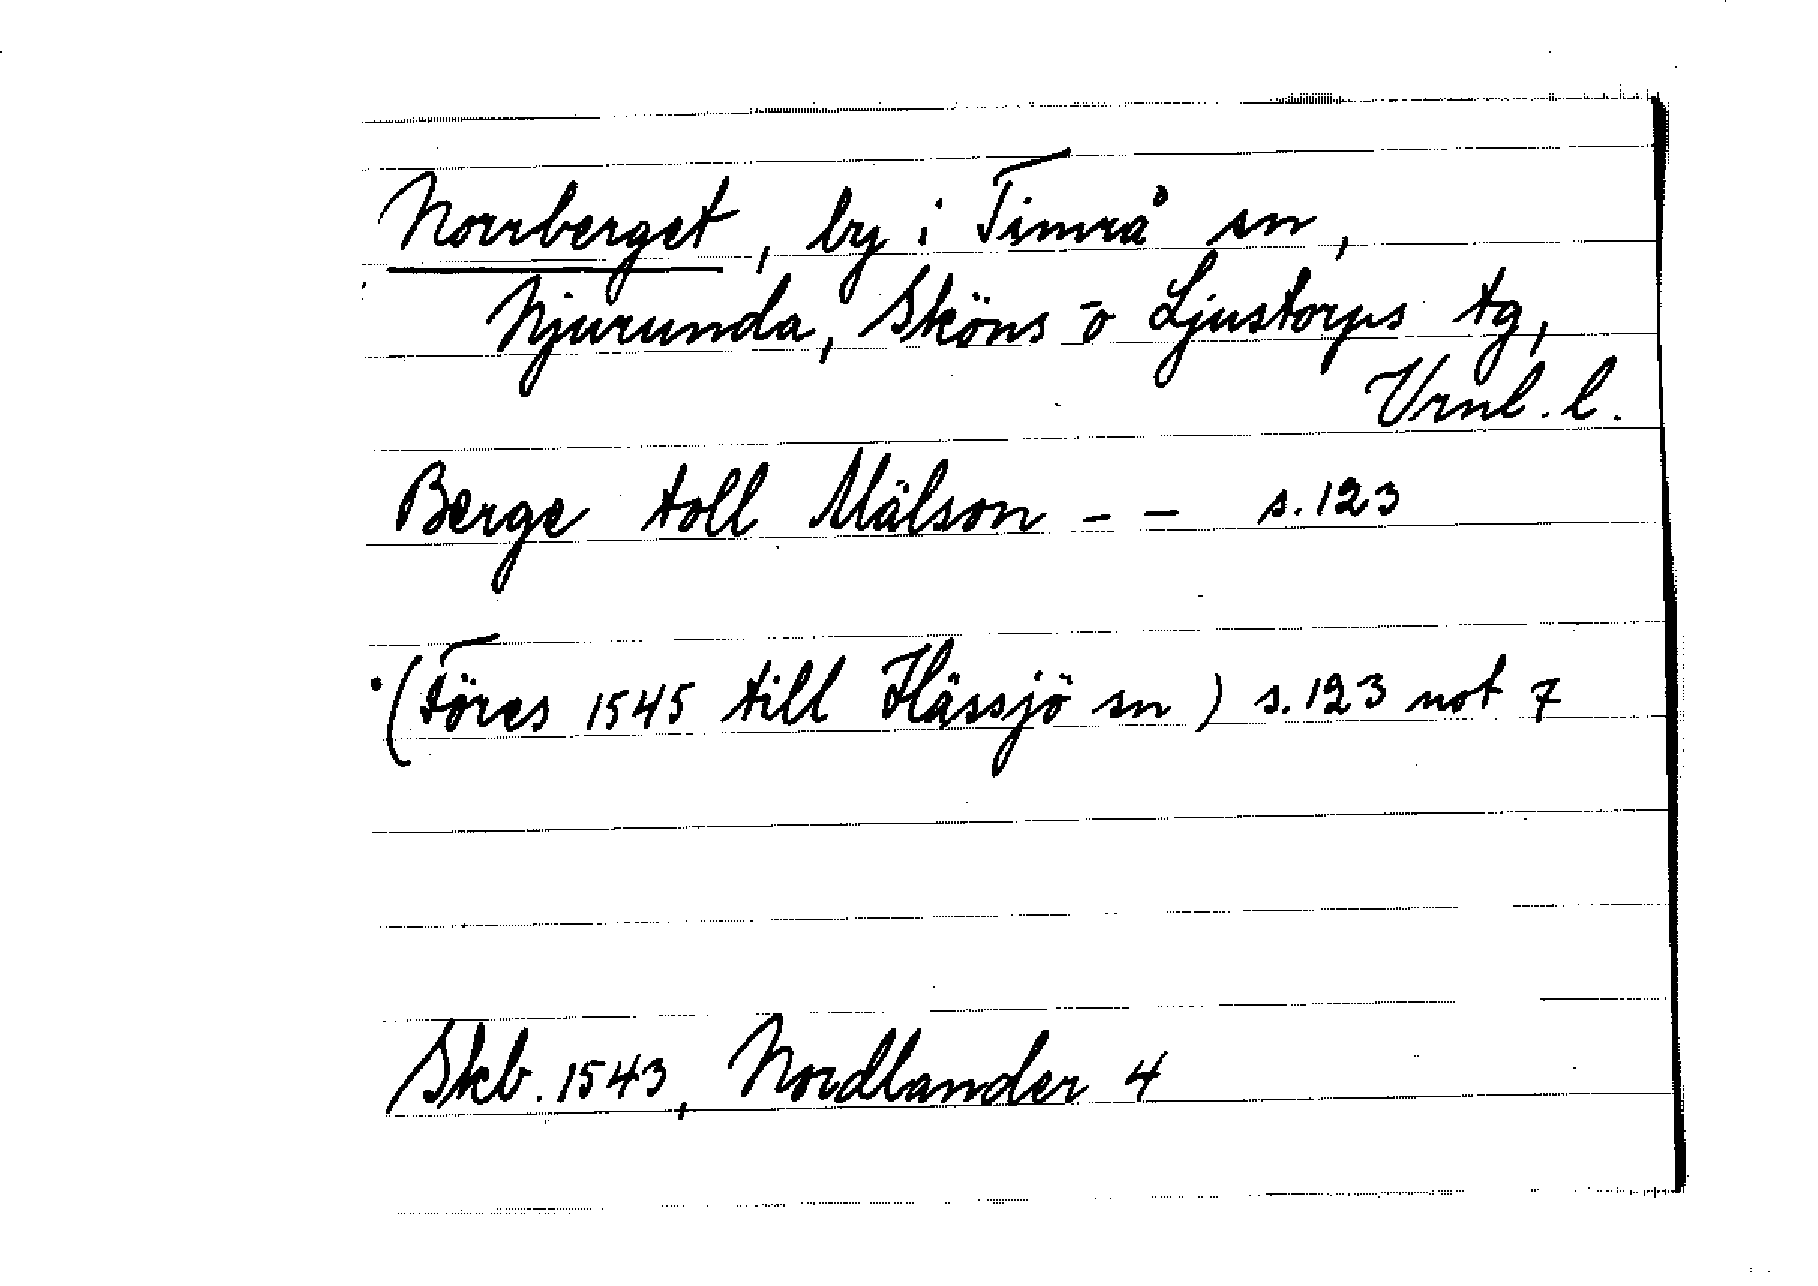 Norrberget, by i Timrå sn,
Njurunda, Sköns o Ljustorps tg,
Vrnl. l.
Berge toll Mälson - - s. 123
(Föres 1545 till Hässjö sn) s. 123 not 7
Skb. 1543, Nordlander 4